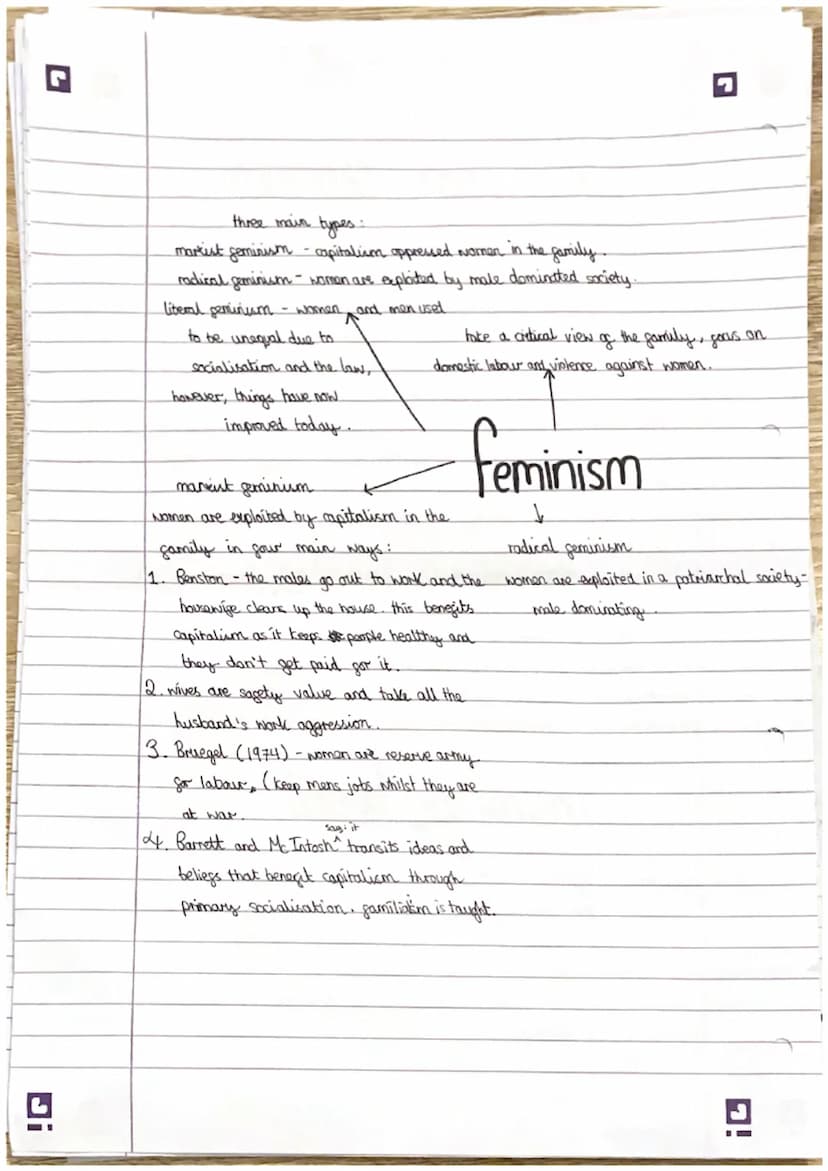 three main types:
marxist feminism - capitalism oppressed women in the family.
radical feminism - women are exploited by male dominated society.
liberal feminism - women, and men used
to be unequal due to
socialisation and the law,
however, things have now
improved today.
take a critical view of the family, focus on
domestic labour and violence against women.
feminism
marxist feminism
women are exploited by capitalism in the
family in four main ways:
1. Benston - the males go out to work and the
housewife clears up the house. this benefits
capitalism as it keeps people healthy and
they don't get paid for it.
2. wives are safety value and take all the
husband's work aggression.
3. Bruegel (1974) - women are reserve army
for labour, (keep mens jobs whilst they are
at war.
4. Barrett and McIntosh say: it transits ideas and
beliefs that benefit capitalism through
primary socialisation. familialism is taught.
radical feminism
women are exploited in a patriarchal society -
male dominating.